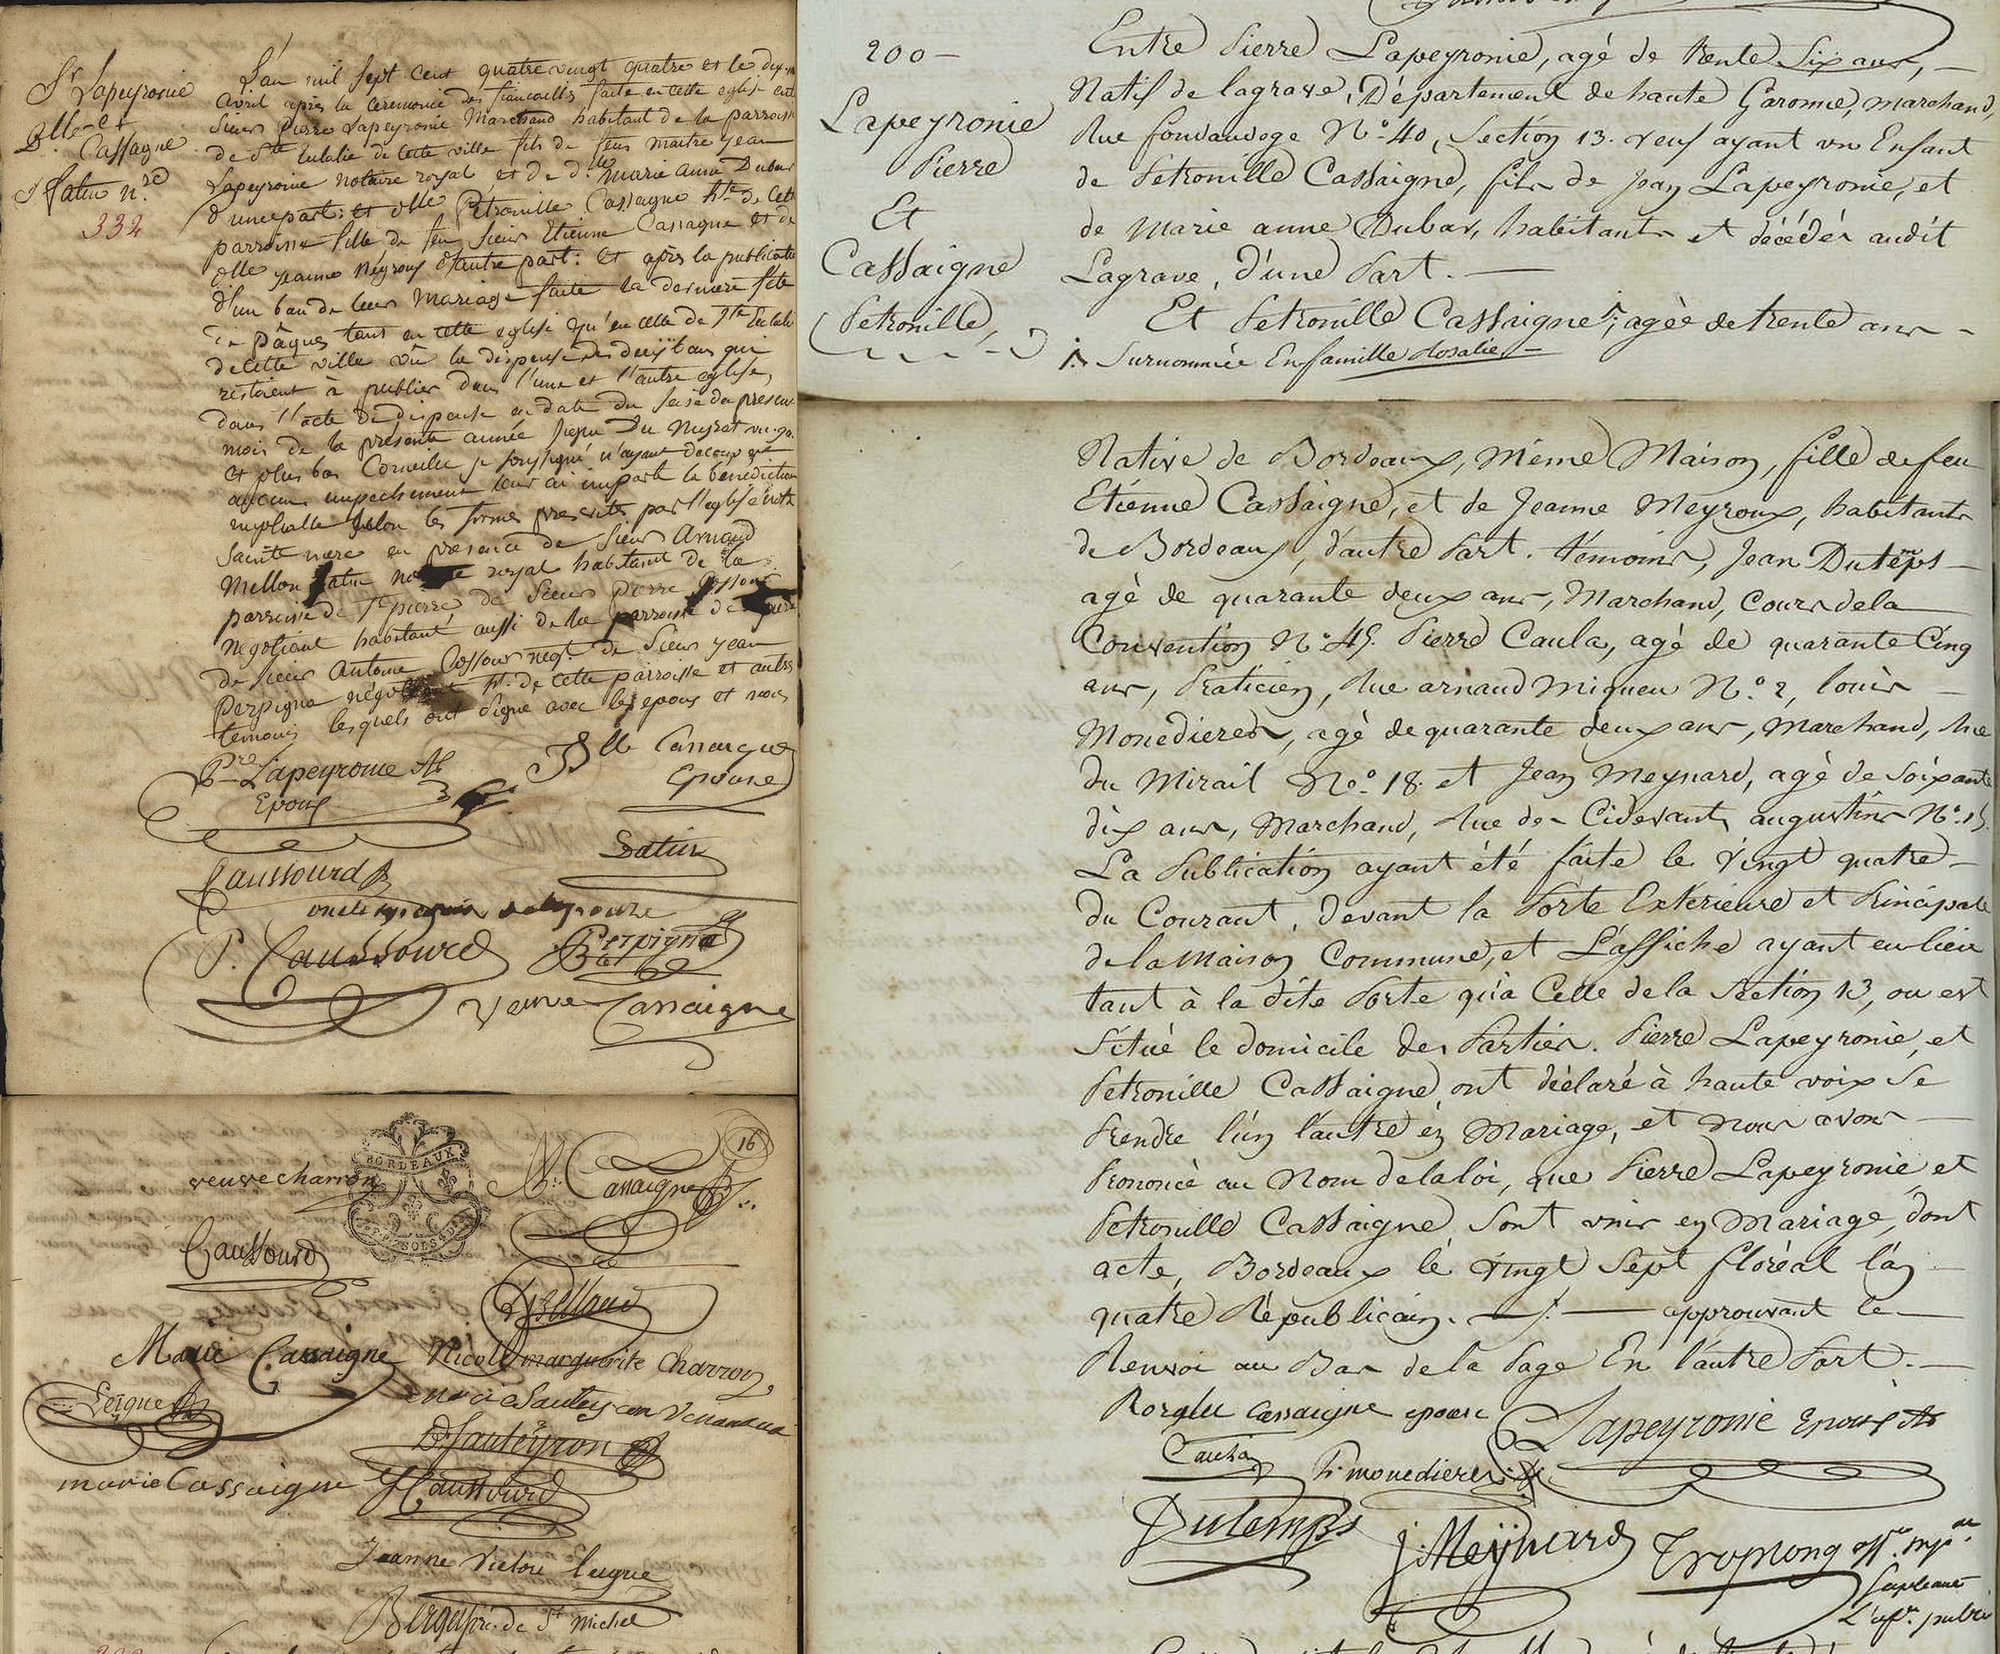 Sr Lapeyronie
et
Dlle Cassagne
Satin nre
332
L'an mil sept cent quatre vingt quatre et le dix
avril après la ceremonie des fiancailles faite en cette eglise entre
Sieur Pierre Lapeyronie Marchand habitant de la parroisse
de Ste Eulalie de cette ville fils de feus maitre Jean
Lapeyronie notaire royal et de dlle Marie anne Dubar
d'une part: et dlle Petronille Cassagne hte de cette
parroisse fille de feu sieur Etienne Cassagne et de
dlle Jeanne d'autre part: et après la publication
d'un ban de leur Mariage faite la derniere fête
de Pâques tant en cette eglise qu'en celle de Ste Eulalie
de cette ville vû la dispense des deux bans qui
restoient à publier dans l'une et l'autre eglise,
dans l'acte de dispense en date du seise du present
mois de la presente année signé
et plus bas je soussigné n'ayant decouvert
aucun empechement leur ai imparti la bénédiction
nuptialle selon les formes prescrites par l'eglise notre
Sainte mere en presence de Sieur Arnaud
Mellon Satin royal habitant de la
parroisse de St pierre de Sieur pierre
negotiant habitant aussi de la parroisse de St pierre
de sieur Antoine negt de Sieur Jean
Perpigna ht de cette parroisse et autres
temoins lesquels ont signé avec les epoux et nous
Pre Lapeyronie
Epoux
Dlle Cassaigne
Epouse
Satin
Caussourd
P. Caussourd
Perpigna
Veuve Cassaigne
16
BORDEAUX
veuve charron
Cassaigne
Caussourd
Marie Cassaigne
Nicolle marguerite Charron
Leigne
D. Sauteyron
marie Cassaigne
Caussourd
Jeanne Victoire Leigne
de St Michel
200
Lapeyronie
Pierre
Et
Cassaigne
Petronille
Entre Pierre Lapeyronie, agé de trente Six ans,
Natif de lagrave, Département de haute Garonne, marchand,
Rue fondaudege No. 40, Section 13. veuf ayant un Enfant
de Petronille Cassaigne, fils de Jean Lapeyronie, et
de Marie anne Dubar, habitants et décédés audit
Lagrave, d'une Part.
Et Petronille Cassaigne 1., agée de trente ans
1. Surnommée En famille Rosalie
Native de Bordeaux, même Maison, fille de feu
Etienne Cassaigne, et de Jeanne Meyroux, habitants
de Bordeaux, d'autre Part. témoins, Jean Dutemps
agé de quarante deux ans, Marchand, Cours de la
Convention No. 45. Pierre Caula, agé de quarante Cinq
ans, Praticien, Rue arnaud miqueu No. 2, louis
Monedieres, agé de quarante deux ans, Marchand, Rue
du Mirail No. 18. et Jean Meynard, agé de soixante
dix ans, Marchand, Rue des Cidevants augustins No. 15.
La Publication ayant été faite le Vingt quatre
du Courant, devant la Porte Extérieure et Principale
de la Maison Commune, et L'affiche ayant eu lieu
tant à la dite Porte qu'à Celle de la Section 13, ou est
Situé le domicile des Parties. Pierre Lapeyronie, et
Petronille Cassaigne ont déclaré à haute voix Se
Prendre l'un l'autre en Mariage, et Nous avons
Prononcé au Nom de la loi, que Pierre Lapeyronie, et
Petronille Cassaigne Sont unis en Mariage, dont
acte, Bordeaux le Vingt Sept floréal l'an
quatre Républicain. approuvant le
Renvoi au Bas de la Page En l'autre Part.
Rosalie Cassaigne epouse
Lapeyronie Epoux
Caula
monedieres
Dutemps
J. Meynard
Tropmong